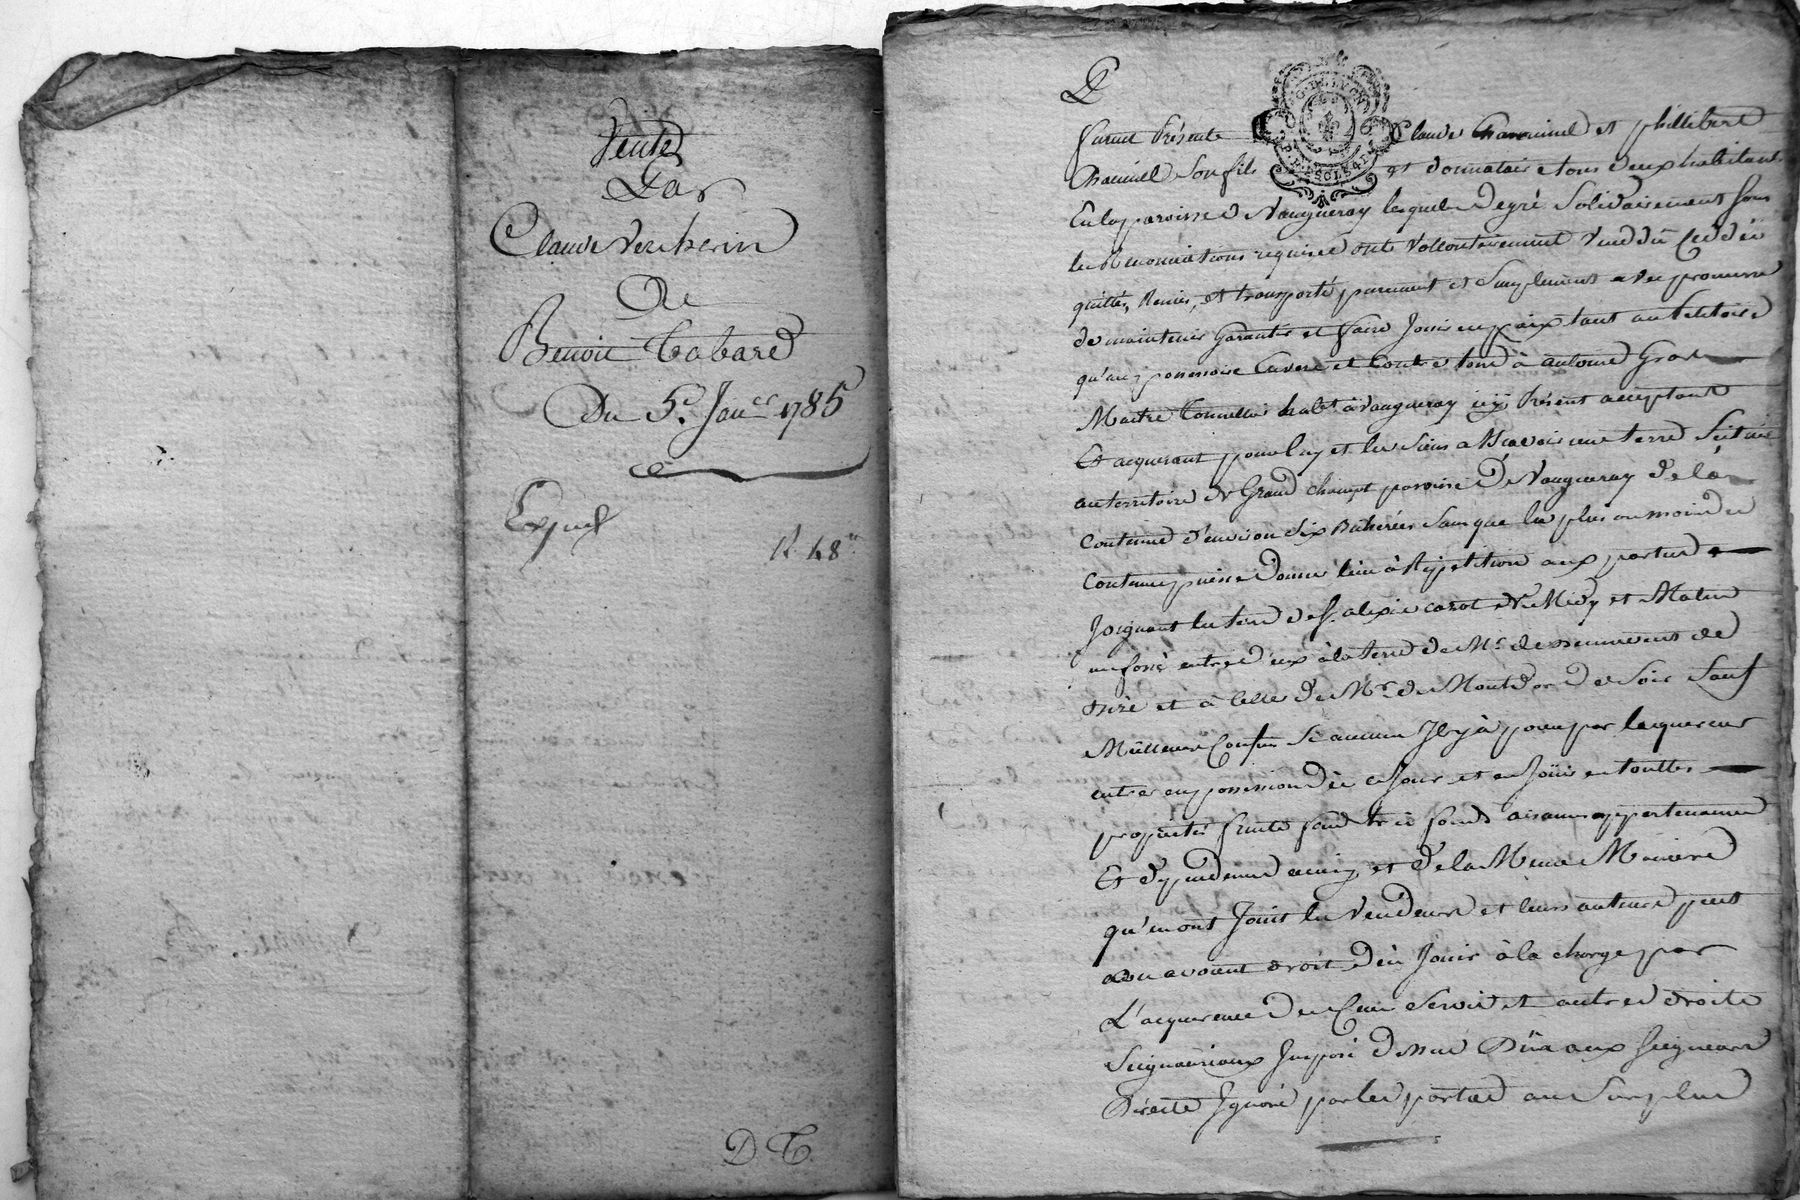 Vente
Par
Claude Vercherin
De
Benoit Tabard
Du 5e. Janer 1785
Exped
R 48
D. T.
G. DE LYON
Furent Présents Claude Chaumel et phillibert
Chaumel son fils et donnataire tous deux habitants
En la paroisse de Vaugneray lesquels de gré Solidairement sous
les Renonciations requises ont vollontairement vendu Ceddé
quitté, Remis, et transporté purement et Simplement avec promesse
de maintenir Garantir et faire Jouir en paix tant au petitoire
qu'au possessoire Envers et Contre tous à antoine Gros
Maitre Tonnellier habt à Vaugneray icy Présent acceptant
Et acquerant pour luy et les Siens a Scavoir une terre Scituée
au territoire de Grand champt paroisse de Vaugneray de la
Contenue d'environ Six Bicherées Sans que le plus ou moins de
Contenue puisse donner lieu à Répetition aux parties
Joignant les terres de Sr. alexis carot de Midy et Matin
un fossé entre deux à la terre de Mr. de de
bize et à Celle de Mr. de Montdor de Soir Sauf
Meilleurs Confins Si aucuns Il y à pour par lacquereur
entrer en possession dès ce Jour et en Jouir en touttes
propriétés fruits fonds tres fonds aisances appartenances
Et dependances ainsy et de la Meme Maniere
qu'en ont Jouit les Vendeurs et leurs auteurs peut
ou avoient droit d'en Jouir à la charge par
L'acquereur de Cens Servis et autres droits
Seigneuriaux Imposé dessus Dûs aux Seigneurs
Directs Ignoré par les parties au Surplus